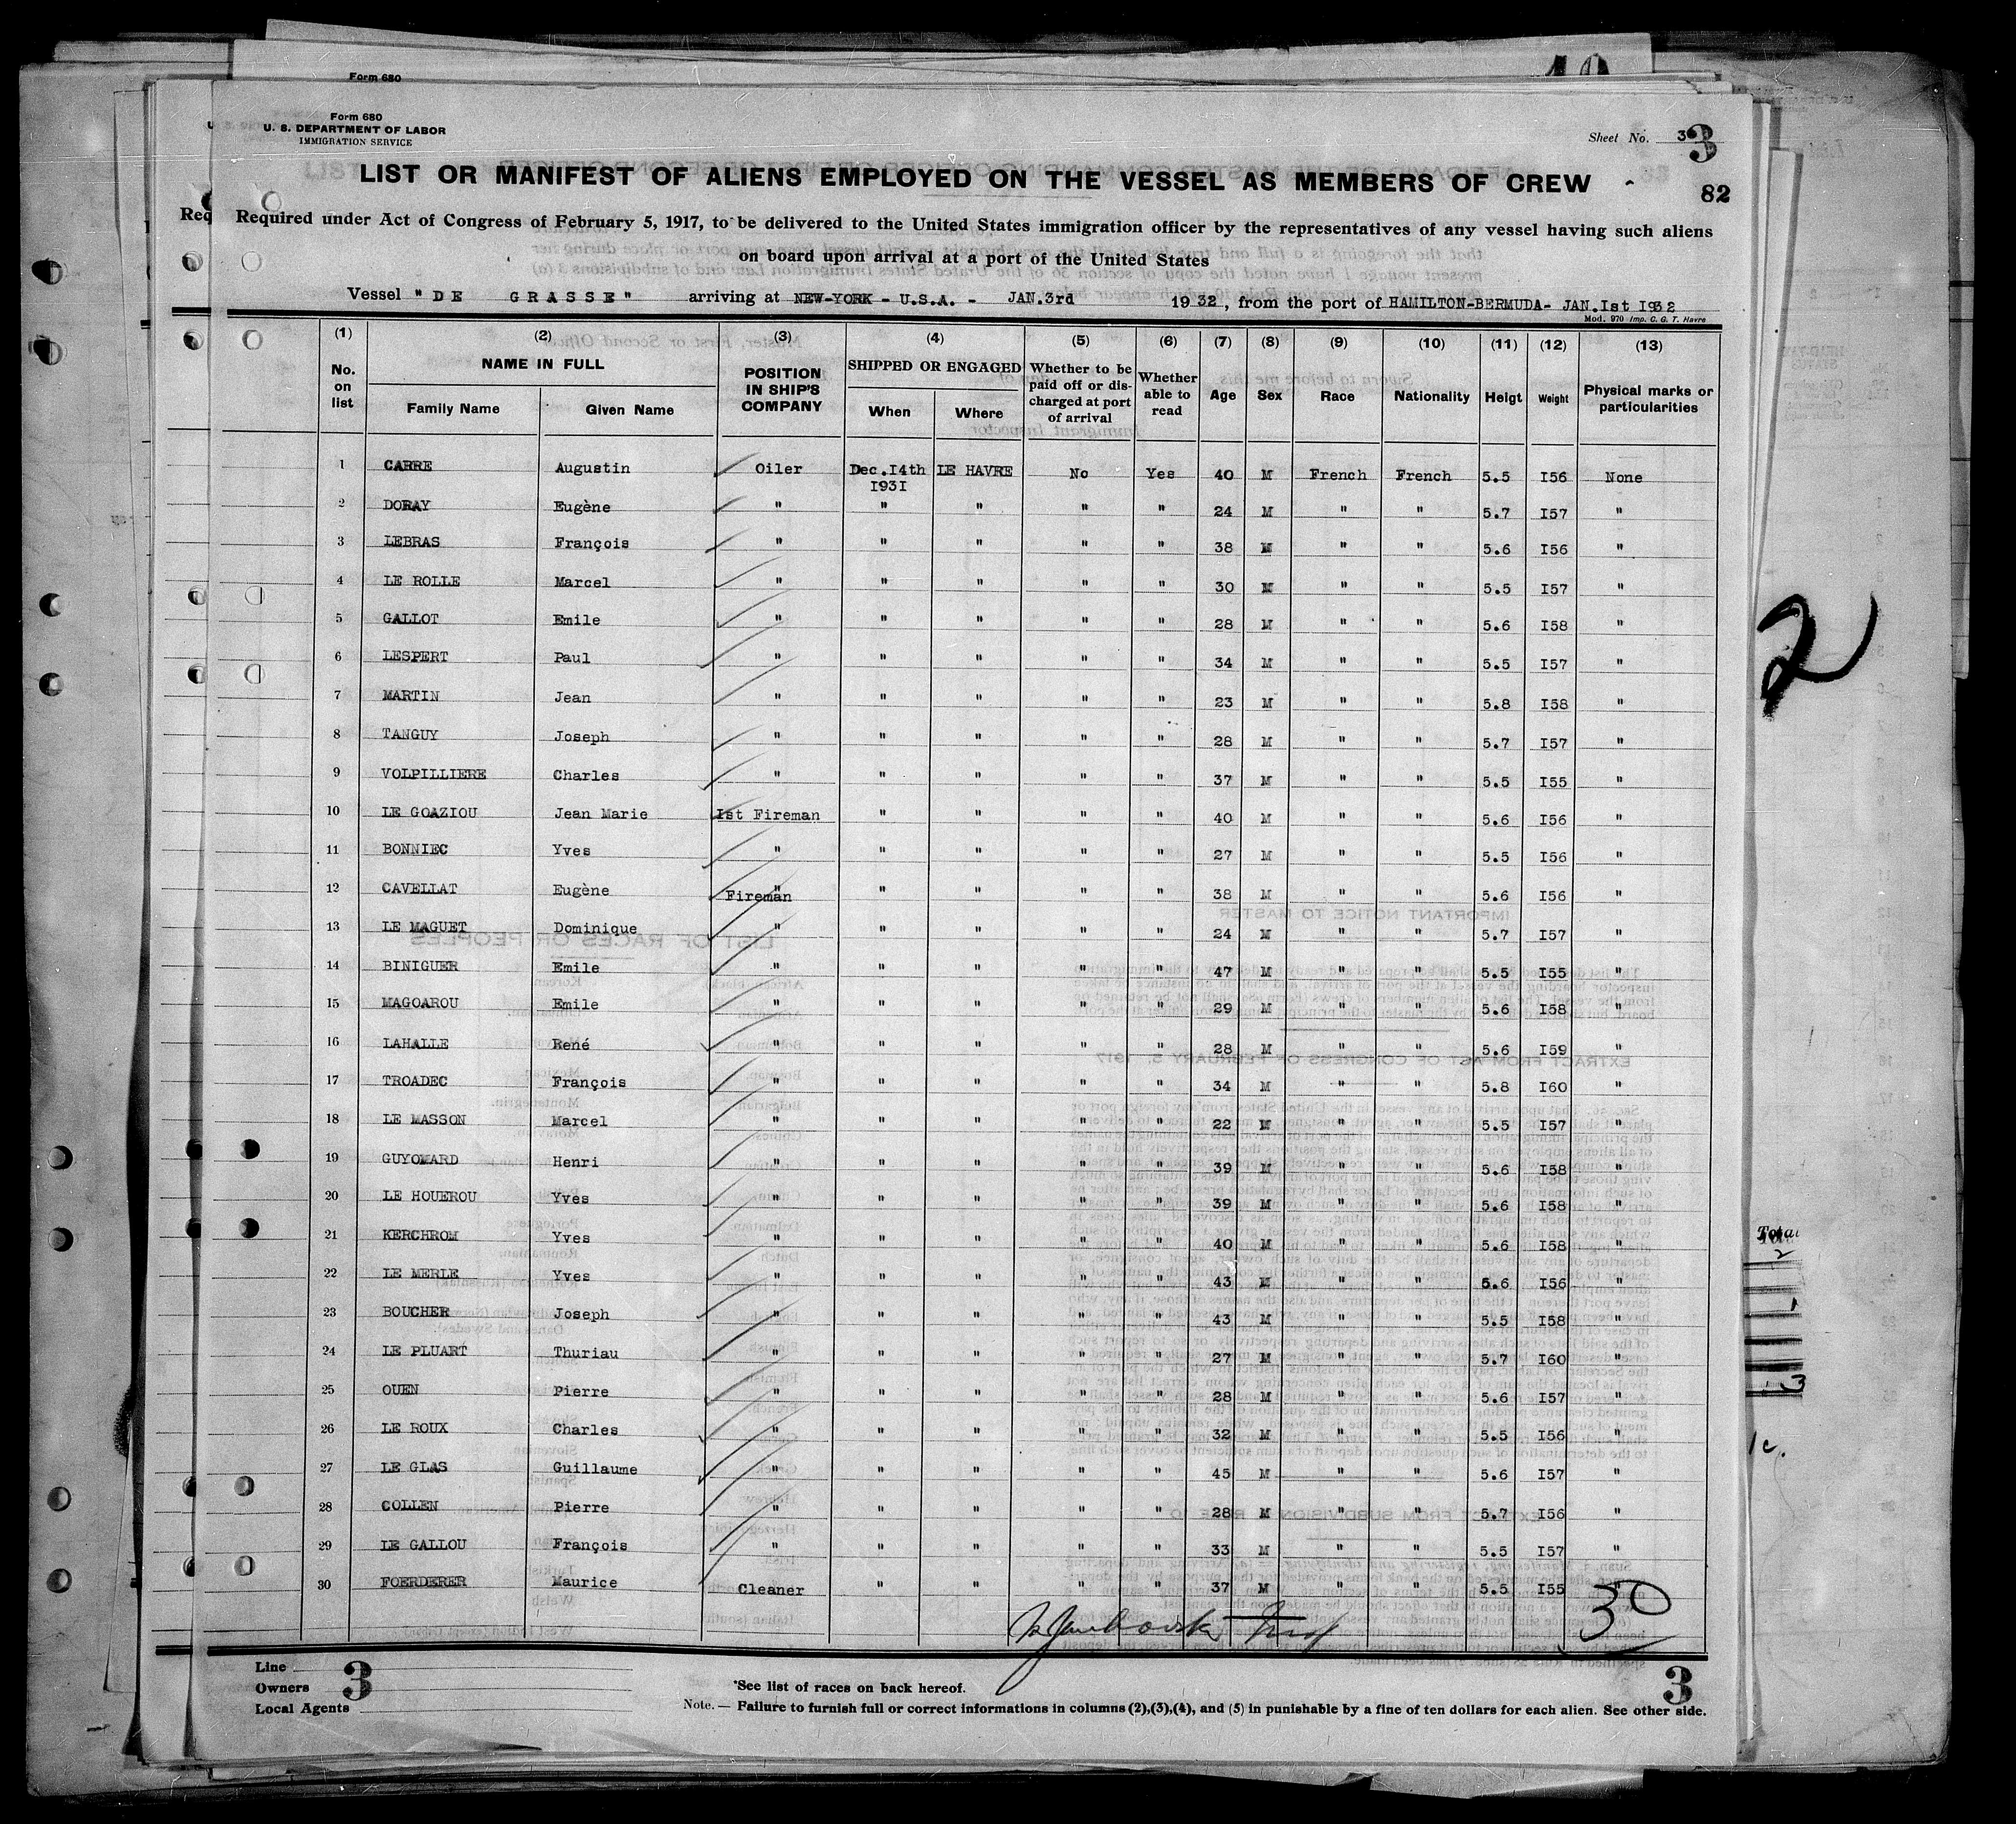 Form 680
Form 680
U. S. DEPARTMENT OF LABOR
IMMIGRATION SERVICE
Sheet No. 3 3
LIST OR MANIFEST OF ALIENS EMPLOYED ON THE VESSEL AS MEMBERS OF CREW
82
Req
Required under Act of Congress of February 5, 1917, to be delivered to the United States immigration officer by the representatives of any vessel having such aliens
on board upon arrival at a port of the United States
Vessel "DE GRASSE" arriving at NEW-YORK - U.S.A. - JAN.3rd 1932, from the port of HAMILTON-BERMUDA- JAN.Ist I932
Mod. 970 Imp. C. G. T. Havre
(1) (2) (3) (4) (5) (6) (7) (8) (9) (10) (11) (12) (13)
No. on list NAME IN FULL POSITION IN SHIP'S COMPANY SHIPPED OR ENGAGED Whether to be paid off or discharged at port of arrival Whether able to read Age Sex Race Nationality Heigt Weight Physical marks or particularities
Family Name Given Name When Where
1 CARRE Augustin Oiler Dec.I4th I93I LE HAVRE No Yes 40 M French French 5.5 I56 None
2 DORAY Eugène " " " " " 24 M " " 5.7 I57 "
3 LEBRAS François " " " " " 38 M " " 5.6 I56 "
4 LE ROLLE Marcel " " " " " 30 M " " 5.5 I57 "
5 GALLOT Emile " " " " " 28 M " " 5.6 I58 "
6 LESPERT Paul " " " " " 34 M " " 5.5 I57 "
7 MARTIN Jean " " " " " 23 M " " 5.8 I58 "
8 TANGUY Joseph " " " " " 28 M " " 5.7 I57 "
9 VOLPILLIERE Charles " " " " " 37 M " " 5.5 I55 "
10 LE GOAZIOU Jean Marie Ist Fireman " " " " 40 M " " 5.6 I56 "
11 BONNIEC Yves " " " " " 27 M " " 5.5 I56 "
12 CAVELLAT Eugène " Fireman " " " " 38 M " " 5.6 I56 "
13 LE MAGUET Dominique " " " " " 24 M " " 5.7 I57 "
14 BINIGUER Emile " " " " " 47 M " " 5.5 I55 "
15 MAGOAROU Emile " " " " " 29 M " " 5.6 I58 "
16 LAHALLE René " " " " " 28 M " " 5.6 I59 "
17 TROADEC François " " " " " 34 M " " 5.8 I60 "
18 LE MASSON Marcel " " " " " 22 M " " 5.5 I57 "
19 GUYOMARD Henri " " " " " 39 M " " 5.6 I58 "
20 LE HOUEROU Yves " " " " " 39 M " " 5.6 I58 "
21 KERCHROM Yves " " " " " 40 M " " 5.6 I58 "
22 LE MERLE Yves " " " " " 43 M " " 5.6 I56 "
23 BOUCHER Joseph " " " " " 43 M " " 5.5 I58 "
24 LE PLUART Thuriau " " " " " 27 M " " 5.7 I60 "
25 OUEN Pierre " " " " " 28 M " " 5.6 I57 "
26 LE ROUX Charles " " " " " 32 M " " 5.5 I56 "
27 LE GLAS Guillaume " " " " " 45 M " " 5.6 I57 "
28 COLLEN Pierre " " " " " 28 M " " 5.7 I56 "
29 LE GALLOU François " " " " " 33 M " " 5.5 I57 "
30 FOERDERER Maurice Cleaner " " " " 37 M " " 5.5 I55 "
30
Line
Owners
Local Agents
3
*See list of races on back hereof.
Note. — Failure to furnish full or correct informations in columns (2),(3),(4), and (5) in punishable by a fine of ten dollars for each alien. See other side.
3
2